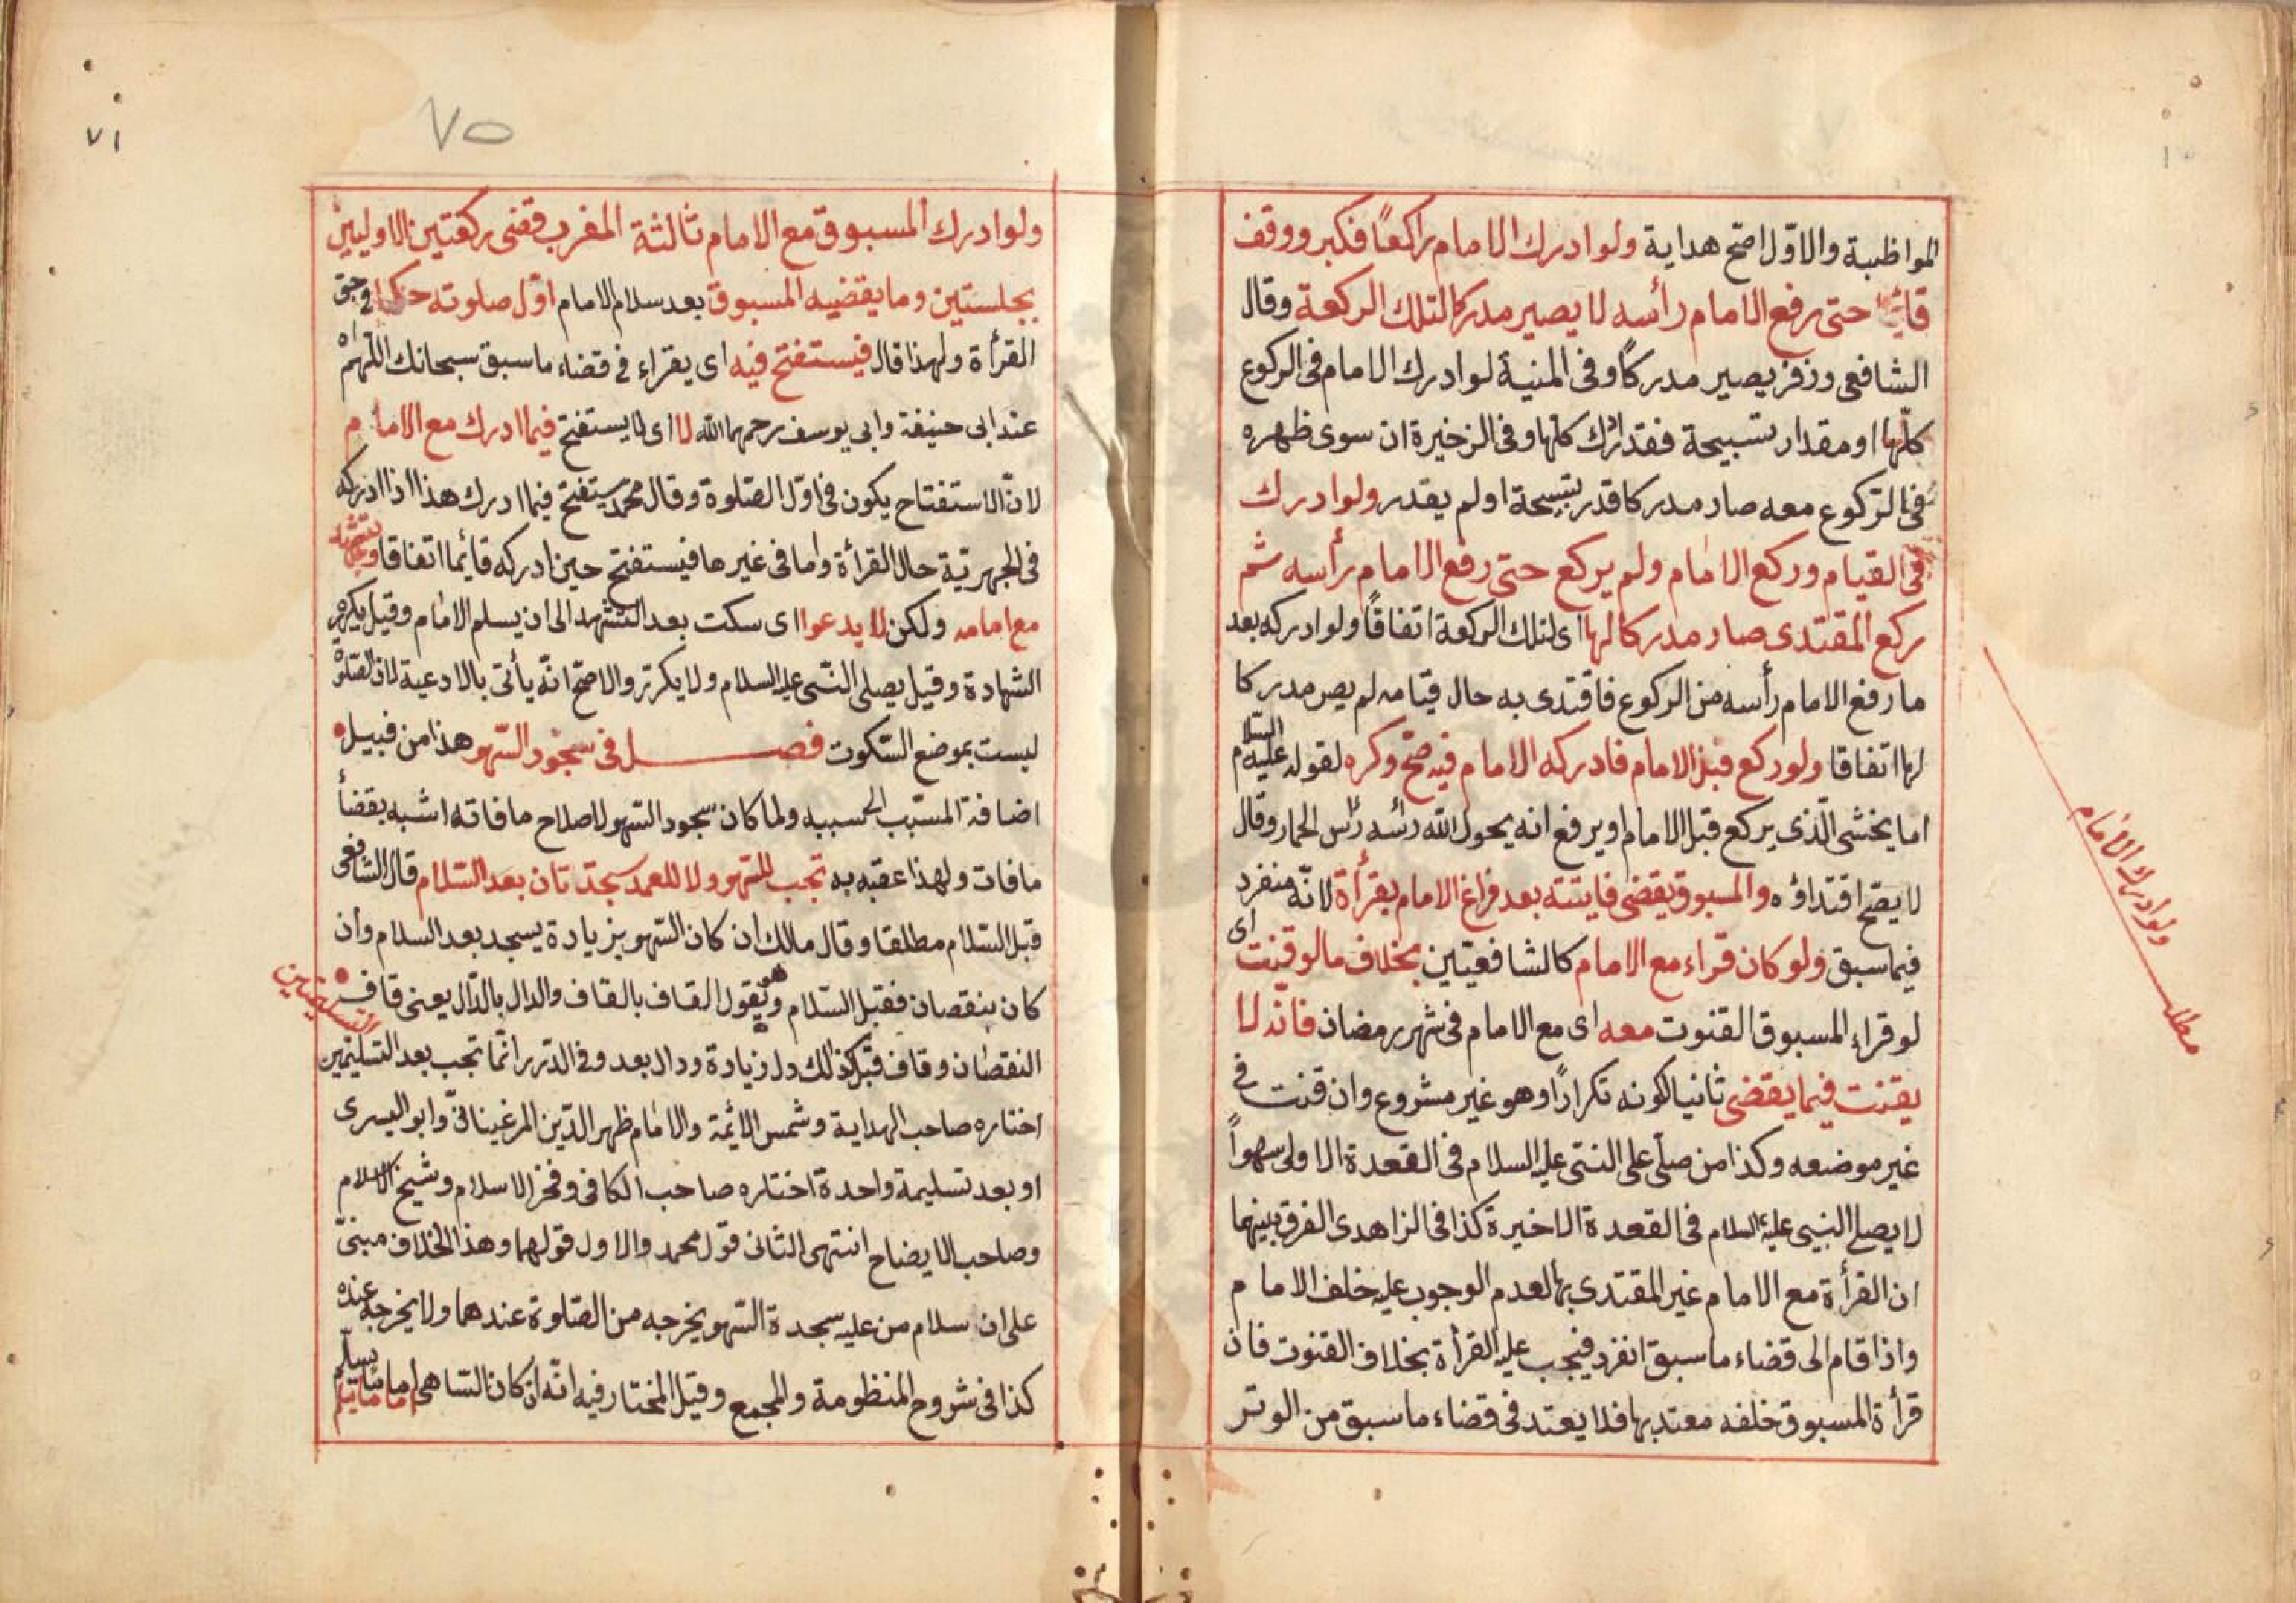 المواظبة والاوّل اصح هداية ولو ادرك الامام راكعًا فكبر ووقف
قائمًا حتى رفع الامام رأسه لا يصير مدركا لتلك الركعة وقال
الشافعى وزفر يصير مدركًا وفى المنية لو ادرك الامام فى الركوع
كلّها او مقدار تسبيحة فقد ادرك كلها وفى الزخيرة ان سوى ظهره
فى الرّكوع معه صار مدركا قدر بتسبيحة او لم يقدر ولو ادرك
فى القيام وركع الامام ولم يركع حتى رفع الامام رأسه ثم
ركع المقتدى صار مدركا لها اى لتلك الركعة اتفاقًا ولو ادركه بعد
ما رفع الامام رأسه من الركوع فاقتدى به حال قيامه لم يصر مدركا
لها اتفاقا ولو ركع قبل الامام فادركه الامام فيه صحّ وكره لقوله عليه السلام
اما يخشى الّذى يركع قبل الامام او يرفع انه يحول الله رأسه رأس الحمار وقال
لا يصحّ اقتداؤه والمسبوق يقضى فايتته بعد فراغ الامام بقرأة لانّه منفرد
فيما سبق ولو كان قراء مع الامام كالشافعيّين بخلاف ما لو قنت اى
لو قراء المسبوق القنوت معه اى مع الامام فى شهر رمضان فانّه لا
يقنت فيما يقضى ثانيا لكونه تكرارًا وهو غير مشروع وان قنت فى
غير موضعه وكذا من صلّى على النبّى عليه السلام فى القعدة الاولى سهوًا
لا يصلى النبيى عليه السلام فى القعدة الاخيرة كذا فى الزاهدى الفرق بينهما
ان القرأة مع الامام غير المقتدى بها لعدم الوجوب عليه خلف الامام
واذا قام الى قضاء ما سبق انفرد فيجب عليه القرأة بخلاف القنوت فان
قرأة المسبوق خلفه معتد بها فلا يعتد فى قضاء ما سبق من الوتر
مطلب ولو ادرك الامام
٧١
٧٥
ولو ادرك المسبوق مع الامام ثالثة المغرب قضى ركعتين الاوليين
بجلستين وما يقضيه المسبوق بعد سلام الامام اوّل صلوته حكما فى حق
القرأة ولهذا قال فيستفتح فيه اى يقراء فى قضاء ما سبق سبحانك اللّهمّ اه
عند ابى حنيفة وابى يوسف رحمهما الله لا اى لا يستفتح فيما ادرك مع الامام
لانّ الاستفتاح يكون فى اوّل الصّلوة وقال محمد يستفتح فيما ادرك هذا اذا ادركه
فى الجهريّة حال القرأة واما فى غيرها فيستفتح حين ادركه قائما اتفاقا
مع امامه ولكن لا يدعوا اى سكت بعد التشهد الى ان يسلم الامام وقيل يكرر
الشهادة وقيل يصلى النّبى عليه السلام ولا يكرر والاصحّ انّه يأتى بالادعية لان الصّلوة
ليست بموضع السّكوت فصل فى سجود السّهو هذا من قبيل
اضافة المسبّب الى سببه ولما كان سجود السّهو لاصلاح ما فاته اشبه بقضأ
ما فات ولهذا عقبه به تجب للسّهو ولا للعمد سجدتان بعد السّلام قال الشافعى
قبل السّلام مطلقا وقال مالك ان كان السّهو بزيادة يسجد بعد السلام وان
كان بنقصان فقبل السّلام وهو يقول القاف بالقاف والدال بالدّال يعنى قاف
النقصان وقاف قبل كذلك دال زيادة ودال بعد وفى الدّرر انّما تجب بعد التسليمين
اختاره صاحب الهداية وشمس الائمة والامام ظهر الدّين المرغينانى وابو اليسرى
او بعد تسليمة واحدة اختاره صاحب الكافى وفخر الاسلام وشيخ الاسلام
وصاحب الايضاح انتهى الثانى قول محمد والاول قولهما وهذا الخلاف مبنىّ
على ان سلام من عليه سجدة السّهو يخرجه من الصّلوة عندهما ولا يخرجه عنده
كذا فى شروح المنظومة والمجمع وقيل المختار فيه انّه ان كان السّاهى اماما يسلّم